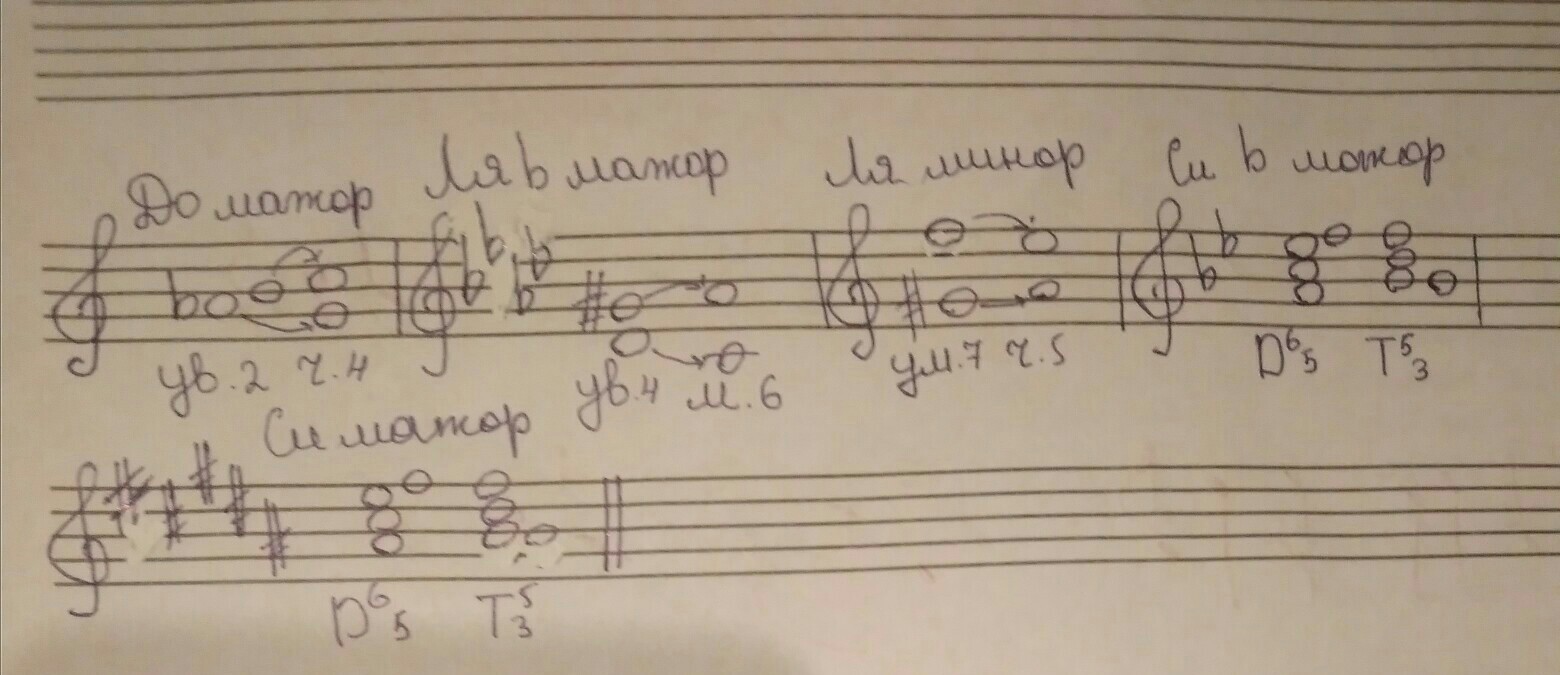 До мажор Ля b мажор Ля минор Си b мажор
ув.2 ч.4 ув.4 м.6 ум.7 ч.5 D⁶₅ T⁵₃
Си мажор
D⁶₅ T⁵₃